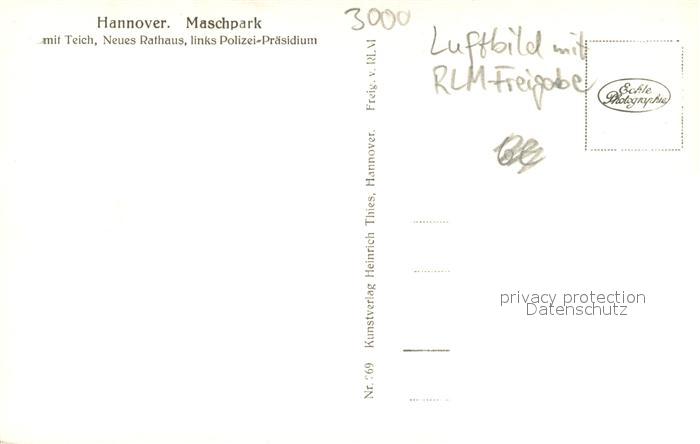 Hannover. Maschpark
mit Teich, Neues Rathaus, links Polizei-Präsidium
3000
Luftbild mit
RLM-Freigabe
Echte
Photographie
Nr. 69 Kunstverlag Heinrich Thies, Hannover. Freig. v. RLM
privacy protection
Datenschutz